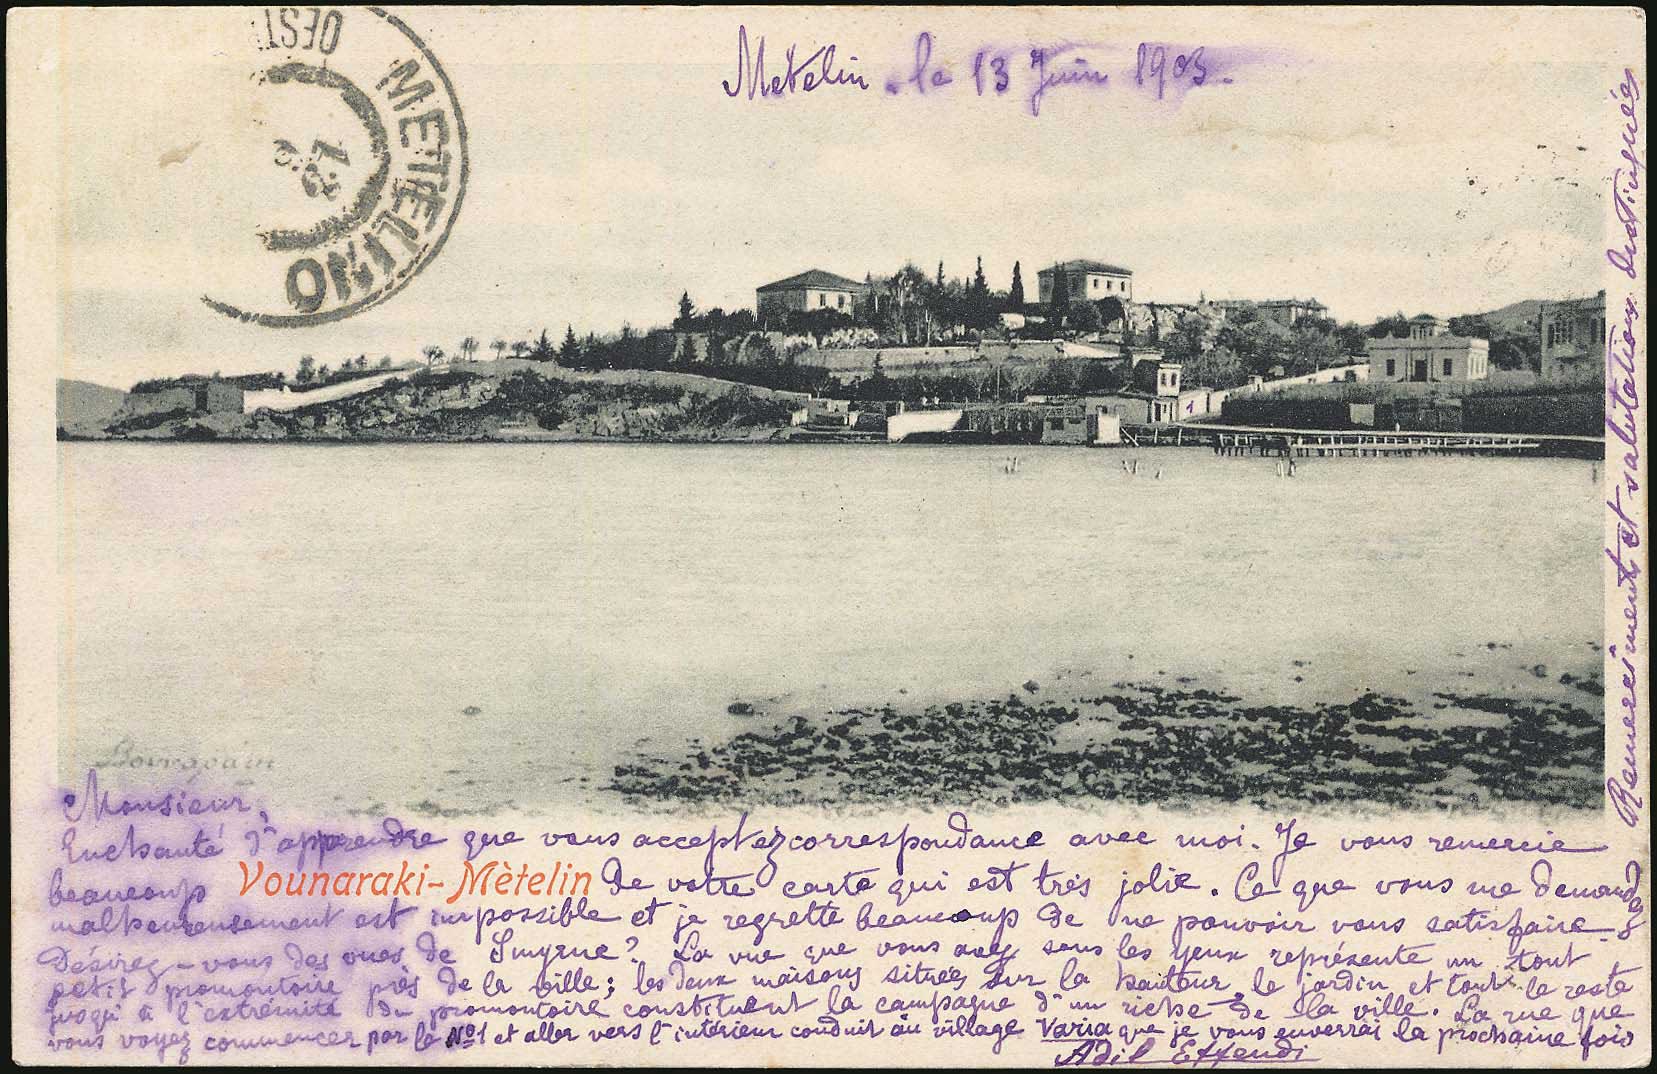 OEST
METELINO
Metelin. le 13 Juin 1903.
1
Monsieur,
Enchanté d'apprendre que vous acceptez correspondance avec moi. Je vous remercie
beaucoup Vounaraki-Mètelin de votre carte qui est très jolie. Ce que vous me demandez
malheureusement est impossible et je regrette beaucoup de ne pouvoir vous satisfaire.
Désirez-vous des vues de Smyrne? La vue que vous avez sous les yeux représente un tout
petit promontoire près de la ville; les deux maisons situées sur la hauteur, le jardin et tout le reste
jusqu'à l'extrémité du promontoire constituent la campagne d'un riche de la ville. La rue que
vous voyez commencer par le No1 et aller vers l'intérieur conduit au village Varia que je vous enverrai la prochaine fois
Adil Effendi
Remercîments et salutations distinguées